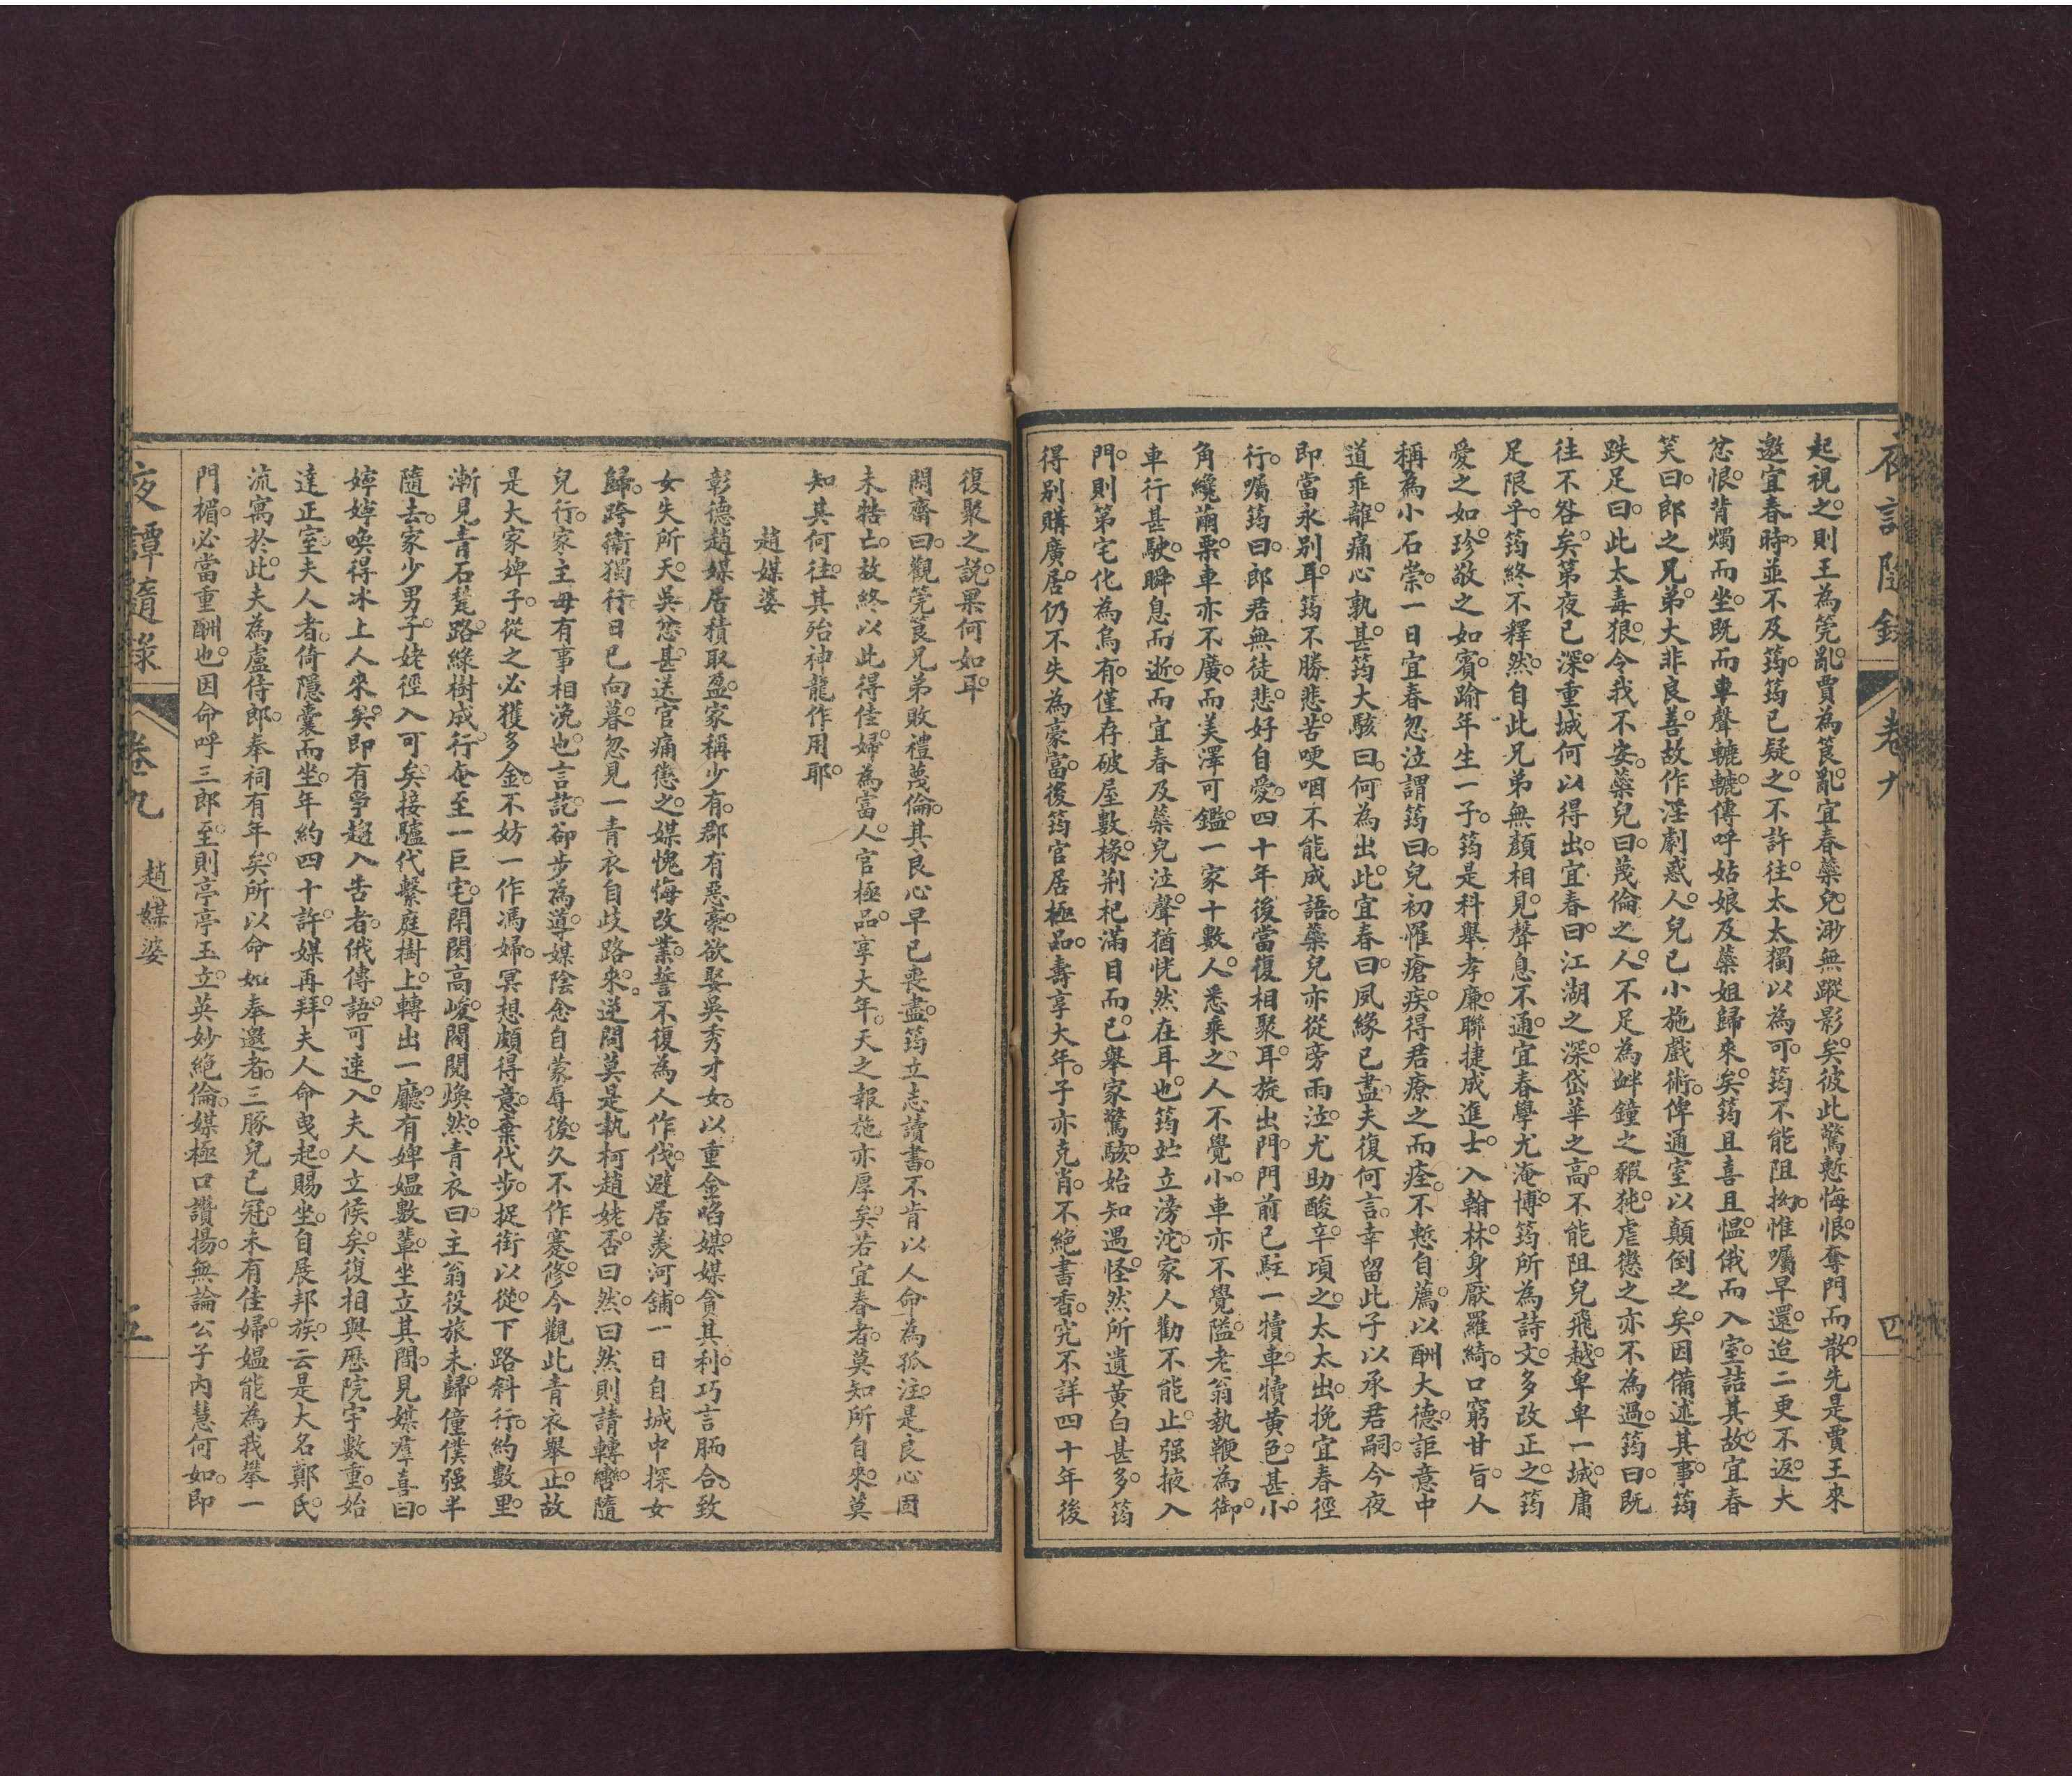 夜譚隨錄
卷九
四
起視之則王為筦亂賈為筤亂宜春藥兒渺無蹤影矣彼此驚慙悔恨奪門而散先是賈王來
邀宜春時並不及筠筠已疑之不許往太太獨以為可筠不能阻拗惟囑早還迨二更不返大
忿恨背燭而坐既而車聲轆轆傳呼姑娘及藥姐歸來矣筠且喜且慍俄而入室詰其故宜春
笑曰郎之兄弟大非良善故作淫劇惑人兒已小施戲術俾通室以顛倒之矣因備述其事筠
跌足曰此太毒狠令我不安藥兒曰蔑倫之人不足為衅鐘之豭㹠虐懲之亦不為過筠曰既
往不咎矣第夜已深重城何以得出宜春曰江湖之深岱華之高不能阻兒飛越卑卑一城庸
足限乎筠終不釋然自此兄弟無顏相見聲息不通宜春學尤淹博筠所為詩文多改正之筠
愛之如珍敬之如賓踰年生一子筠是科舉孝廉聯捷成進士入翰林身厭羅綺口窮甘旨人
稱為小石崇一日宜春忽泣謂筠曰兒初罹瘡疾得君療之而痊不慙自薦以酬大德詎意中
道乖離痛心孰甚筠大駭曰何為出此宜春曰夙緣已盡夫復何言幸留此子以承君嗣今夜
即當永別耳筠不勝悲苦哽咽不能成語藥兒亦從旁雨泣尤助酸辛項之太太出挽宜春徑
行囑筠曰郎君無徒悲好自愛四十年後當復相聚耳旋出門門前已駐一犢車犢黃色甚小
角纔繭栗車亦不廣而美澤可鑑一家十數人悉乘之人不覺小車亦不覺隘老翁執鞭為御
車行甚駛瞬息而逝而宜春及藥兒泣聲猶恍然在耳也筠竚立滂沱家人勸不能止强掖入
門則第宅化為烏有僅存破屋數椽荆杞滿目而已舉家驚駭始知遇怪然所遺黃白甚多筠
得別購廣居仍不失為豪富後筠官居極品壽享大年子亦克肖不絕書香究不詳四十年後
復聚之說果何如耳
閒齋曰觀筦筤兄弟敗禮蔑倫其良心早已喪盡筠立志讀書不肯以人命為孤注是良心固
未牿亡故終以此得佳婦為富人官極品享大年天之報施亦厚矣若宜春者莫知所自來莫
知其何往其殆神龍作用耶
趙媒婆
彰德趙媒居積取盈家稱少有郡有惡豪欲娶吳秀才女以重金啗媒媒貪其利巧言䏶合致
女失所天吳忿甚送官痛懲之媒愧悔改業誓不復為人作伐避居羨河舖一日自城中探女
歸跨衛獨行日已向暮忽見一青衣自歧路來逆問莫是執柯趙姥否曰然曰然則請轉轡隨
兒行家主母有事相浼也言訖卻步為導媒陰念自蒙辱後久不作蹇修今觀此青衣舉止故
是大家婢子從之必獲多金不妨一作馮婦冥想頗得意棄代步捉銜以從下路斜行約數里
漸見青石甃路綠樹成行奄至一巨宅閈閎高峻閥閱煥然青衣曰主翁役旅未歸僮僕强半
隨去家少男子姥徑入可矣接驢代繫庭樹上轉出一廳有婢媼數輩坐立其間見媒羣喜曰
婥婥喚得冰上人來矣即有爭趨入告者俄傳語可速入夫人立候矣復相與歷院宇數重始
達正室夫人者倚隱囊而坐年約四十許媒再拜夫人命曳起賜坐自展邦族云是大名鄭氏
流寓於此夫為盧侍郎奉祠有年矣所以命如奉邀者三豚兒已冠未有佳婦媼能為我攀一
門楣必當重酬也因命呼三郎至則亭亭玉立英妙絕倫媒極口讚揚無論公子內慧何如即
夜譚隨錄
卷九
趙媒婆
五